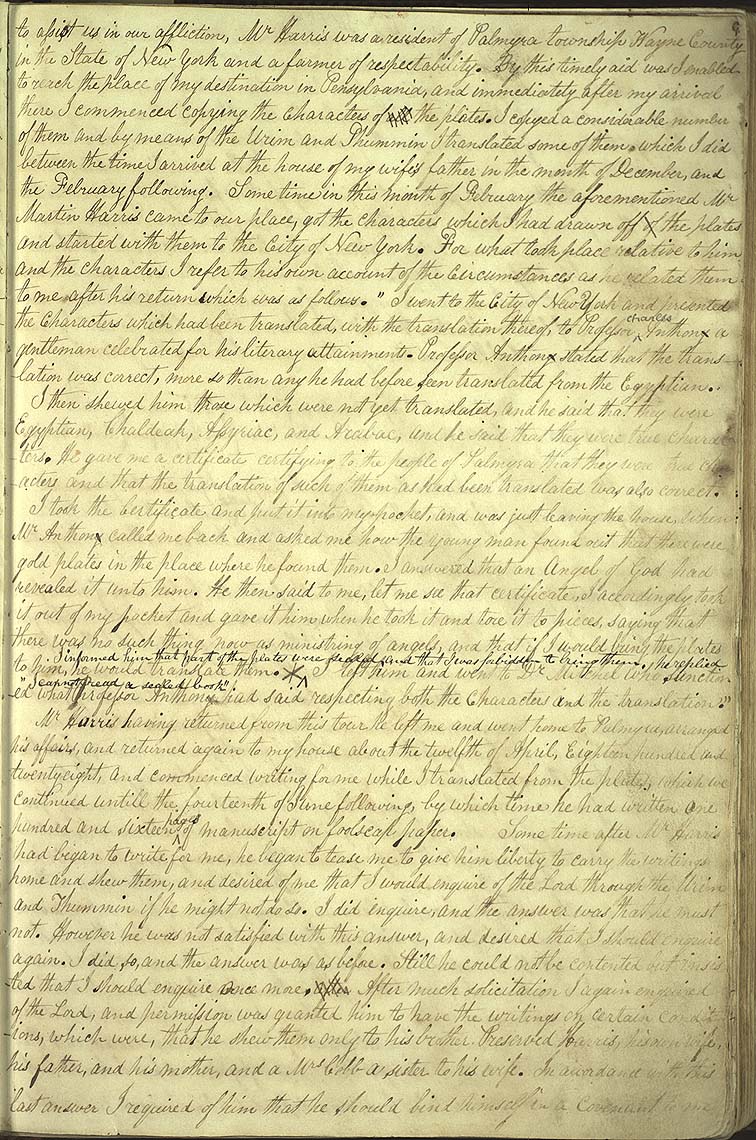 9
to assist us in our affliction, Mr Harris was a resident of Palmyra township Wayne County
in the State of New York and a farmer of respectability. By this timely aid was I enabled
to reach the place of my destination in Pensylvania, and immediately after my arrival
there I commenced copying the characters of the plates. I copyed a considerable number
of them and by means of the Urim and Thummin I translated some of them which I did
between the time I arrived at the house of my wife's father in the month of December, and
the February following. Some time in this month of February the aforementioned Mr
Martin Harris came to our place, got the characters which I had drawn off the plates
and started with them to the City of New York. For what took place relative to him
and the characters I refer to his own account of the circumstances as he related them
to me after his return which was as follows. "I went to the City of New York and presented
the Characters which had been translated, with the translation thereof to Professor charles Anthony a
gentleman celebrated for his literary attainments. Professor Anthony stated that the trans-
-lation was correct, more so than any he had before seen translated from the Egyptian.
I then shewed him those which were not yet translated, and he said that they were
Egyptian, Chaldeak, Assyriac, and Arabac, and he said that they were true charac-
-ters. He gave me a certificate certifying to the people of Palmyra that they were true char-
-acters and that the translation of such of them as had been translated was also correct.
I took the Certificate and put it into my pocket, and was just leaving the house, when
Mr Anthony called me back and asked me how the young man found out that there were
gold plates in the place where he found them. I answered that an Angel of God had
revealed it unto him. He then said to me, let me see that certificate, I accordingly took
it out of my pocket and gave it him when he took it and tore it to pieces, saying that
there was no such thing now as ministring of angels, and that if I would bring the plates
to him, he would translate them. I informed him that part of the plates were sealed, and that I was forbidden to bring them, he replied
"I cannot read a sealed book". I left him and went to Dr Mitchel who sanction
-ed what Professor Anthony had said respecting both the Characters and the translation."
Mr Harris having returned from this tour he left me and went home to Palmyra, arranged
his affairs, and returned again to my house about the twelfth of April, Eighteen hundred and
twenty eight, and commenced writing for me while I translated from the plates, which we
continued untill the fourteenth of June following, by which time he had written one
hundred and sixteen pages of manuscript on foolscap paper. Some time after Mr Harris
had began to write for me, he began to tease me to give him liberty to carry the writings
home and shew them, and desired of me that I would enquire of the Lord through the Urim
and Thummin if he might not do so. I did enquire, and the answer was that he must
not. However he was not satisfied with this answer, and desired that I should enquire
again. I did so, and the answer was as before. Still he could not be contented but insis-
-ted that I should enquire once more. After much solicitation I again enquired
of the Lord, and permission was granted him to have the writings on certain condit-
-ions, which were, that he shew them only to his brother. Preserved Harris, his own wife,
his father, and his mother, and a Mrs Cobb a sister to his wife. In acordance with this
last answer I required of him that he should bind himself in a covenant to me